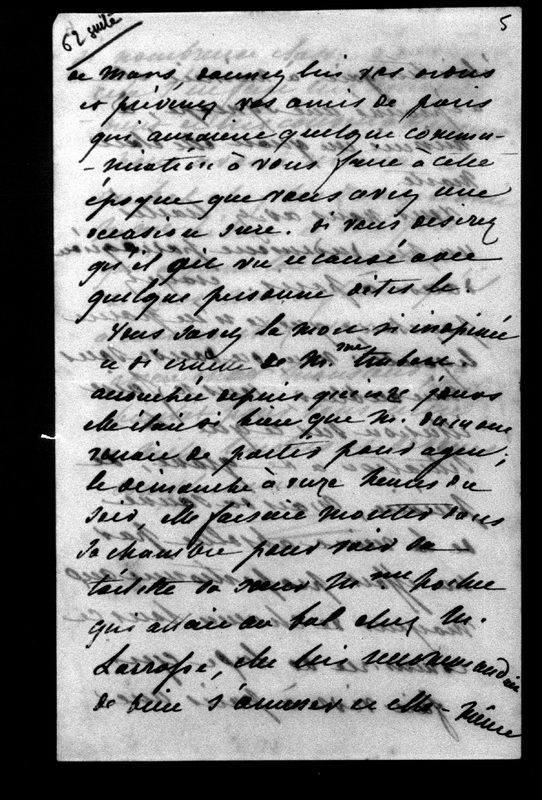 62 suite
5
de mars, donnez lui vos ordres
et prévenez vos amis de paris
qui auraient quelque commu-
-nication à vous faire à cette
époque que vous avez une
occasion sure. si vous desirez
qu'il ait vu et causé avec
quelque personne dites le.
Vous savez la mort si inopinée
et si cruelle de Me
accouchée depuis quinze jours
elle était si bien que M.
venait de partir pour agen;
le dimanche à onze heures du
soir, elle faisait monter dans
sa chambre pour voir sa
toilette sa soeur Mme
qui allait au bal chez M.
elle lui recommandait
de bien s'amuser et elle-même